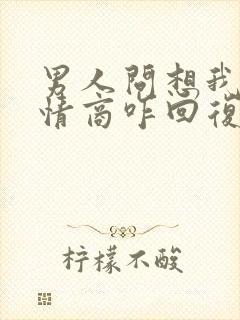 男人問想我
情商咋回復
柠檬不酸